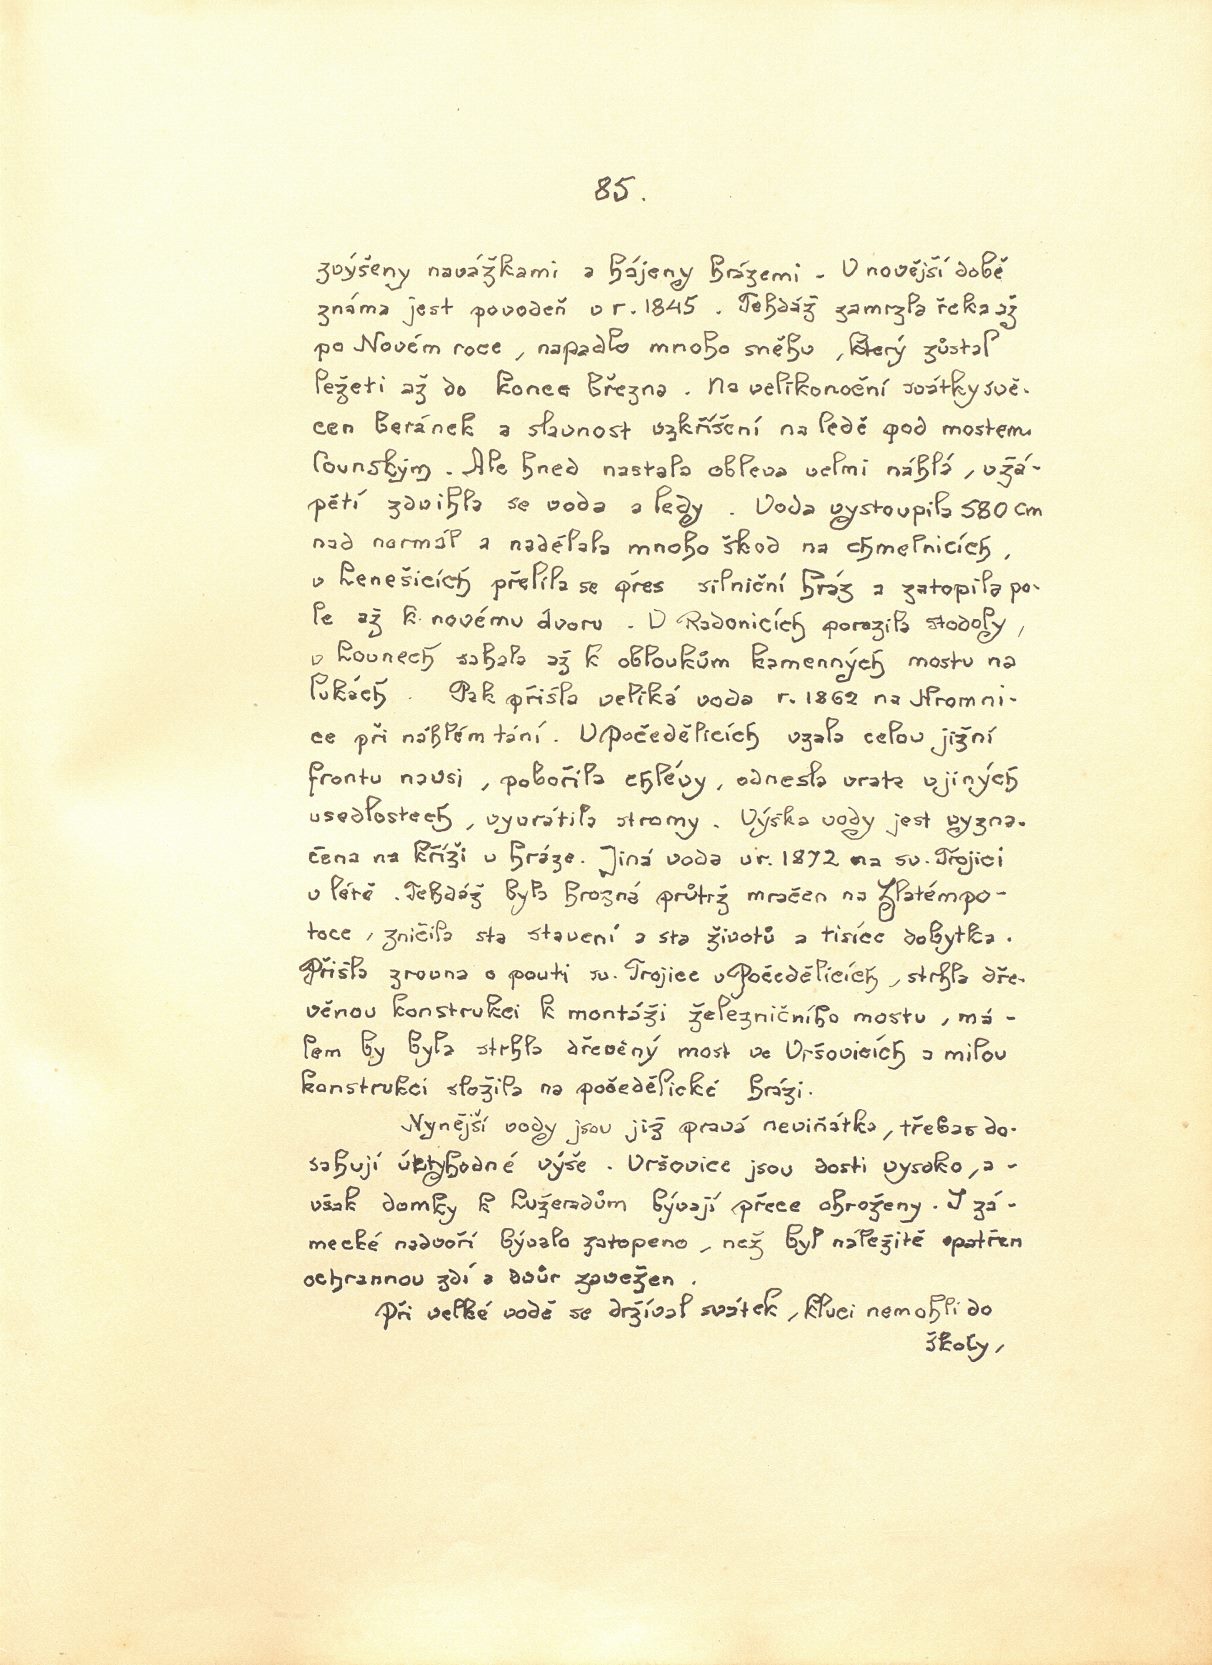 85.
zvýšeny navážkami a hájeny hrázemi - V novější době
známa jest povodeň v r. 1845. Tehdáž zamrzla řeka až
po Novém roce, napadlo mnoho sněhu, který zůstal
ležeti až do konce března. Na velikonoční svátky svě-
cen beránek a slavnost vzkříšení na ledě pod mostem
lounským. Ale hned nastala obleva velmi náhlá, vžá-
pětí zdvihla se voda a ledy. Voda vystoupila 580 cm
nad normál a nadělala mnoho škod na chmelnicích,
v Lenešicích přelila se přes silniční hráz a zatopila po-
le až k novému dvoru. V Radonicích porazila stodoly,
v Lounech sahala až k obloukům kamenných mostu na
lukách. Pak přišla veliká voda r. 1862 na Hromni-
ce při náhlém tání. V Počedělicích vzala celou jižní
frontu návsi, pobořila chlévy, odnesla vrata v jiných
usedlostech, vyvrátila stromy. Výška vody jest vyzna-
čena na kříži u hráze. Jiná voda v r. 1872 na sv. Trojici
v létě. Tehdáž byla hrozná průtrž mračen na Zlatém po-
toce, zničila sta stavení a sta životů a tisíce dobytka.
Přišla zrovna o pouti sv. Trojice v Počedělicích, strhla dře-
věnou konstrukci k montáži železničního mostu, má-
lem by byla strhla dřevěný most ve Vršovicích a milou
konstrukci složila na počedělické hrázi.
Nynější vody jsou již pravá neviňátka, třebas do-
sahují úctyhodné výše. Vršovice jsou dosti vysoko, a-
však domky k Lužeradům bývají přece ohroženy. I zá-
mecké nadvoří bývalo zatopeno, než byl náležitě opatřen
ochrannou zdí a dvůr zavežen.
Při velké vodě se držíval svátek, kluci nemohli do
školy,